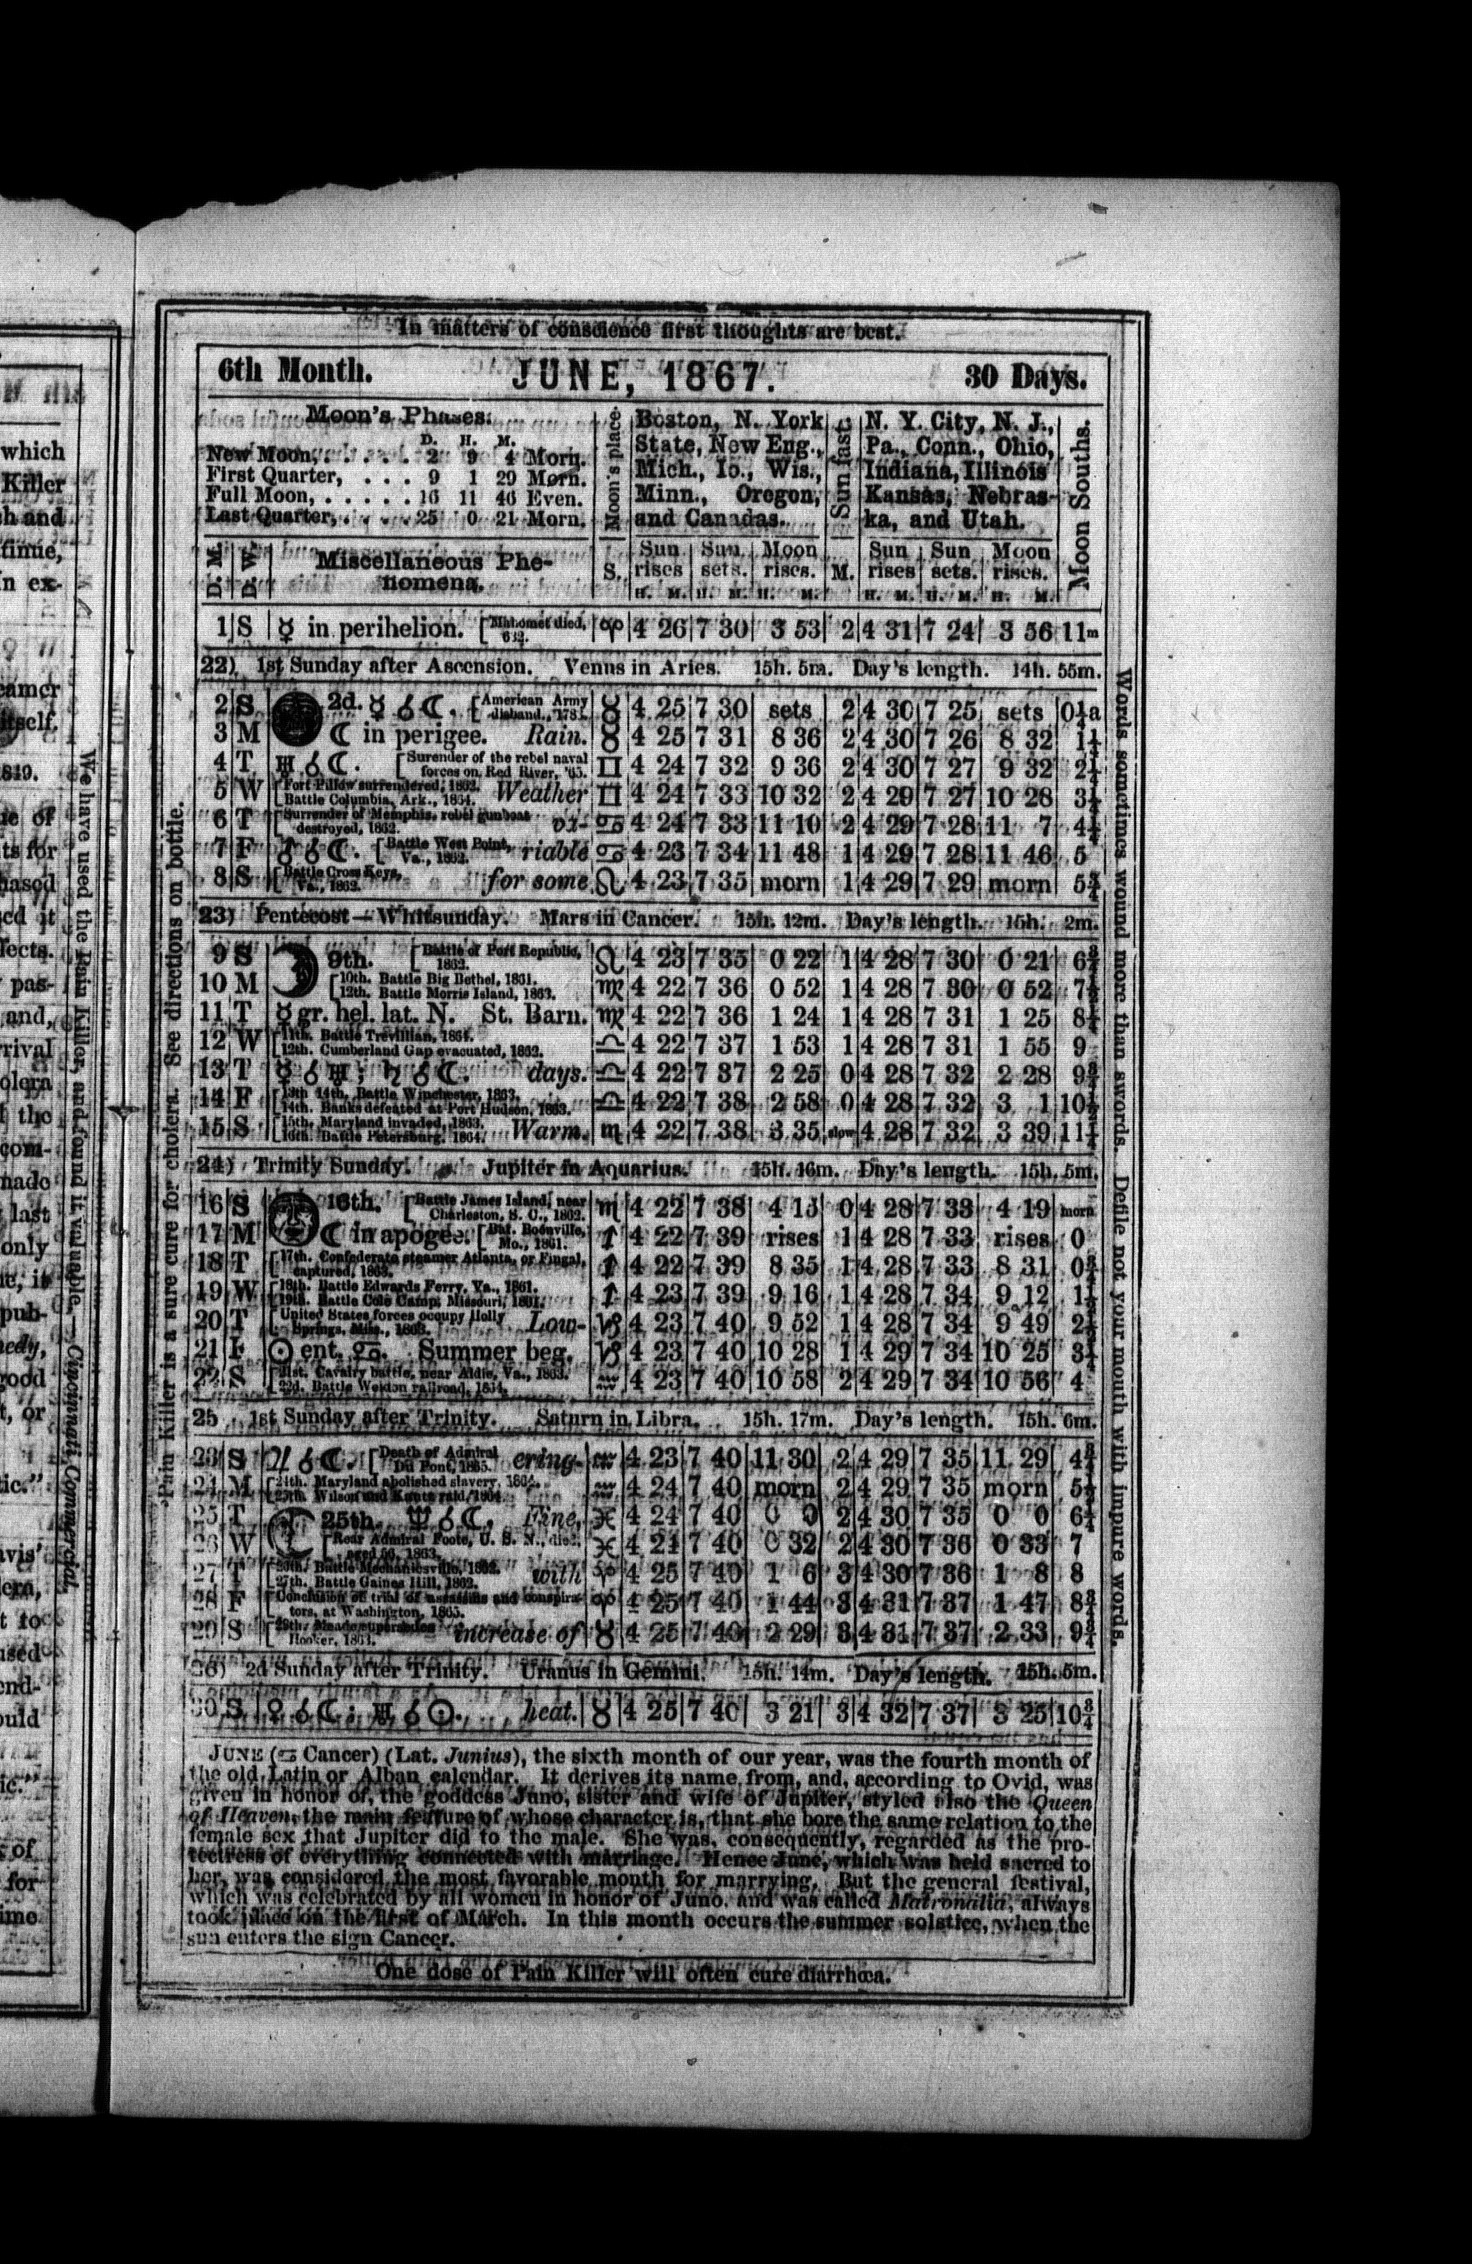 In matters of conscience first thoughts are best.
6th Month. JUNE, 1867. 30 Days.
Moon's Phases.
D. H. M.
New Moon, . . . . . 2 9 4 Morn.
First Quarter, . . . 9 1 29 Morn.
Full Moon, . . . . . 16 11 46 Even.
Last Quarter, . . . . 25 0 21 Morn.
Moon's place
Boston, N. York
State, New Eng.,
Mich., Io., Wis.,
Minn., Oregon,
and Canadas.
Sun fast.
N. Y. City, N. J.,
Pa., Conn., Ohio,
Indiana, Illinois
Kansas, Nebras-
ka, and Utah.
Moon Souths.
D. M. D. W. Miscellaneous Phe-
nomena.
S. Sun rises H. M. Sun sets. H. M. Moon rises. H. M. M. Sun rises H. M. Sun sets. H. M. Moon rises. H. M.
1 S ☿ in perihelion. [Mahomet died, 632. ♈ 4 26 7 30 3 53 2 4 31 7 24 3 56 11m
22) 1st Sunday after Ascension. Venus in Aries. 15h. 5m. Day's length. 14h. 55m.
2 S 2d. ☿ ☌ ☾. [American Army disband., 1783. ♉ 4 25 7 30 sets 2 4 30 7 25 sets 0¼a
3 M ☾ in perigee. Rain. ♉ 4 25 7 31 8 36 2 4 30 7 26 8 32 1¼
4 T ♅ ☌ ☾. [Surender of the rebel naval forces on Red River, '65. ♊ 4 24 7 32 9 36 2 4 30 7 27 9 32 2¼
5 W [Fort Pillow surrendered, 1862. Battle Columbia, Ark., 1864. Weather ♊ 4 24 7 33 10 32 2 4 29 7 27 10 28 3¼
6 T [Surrender of Memphis, rebel gunboat destroyed, 1862. va- ♋ 4 24 7 33 11 10 2 4 29 7 28 11 7 4¼
7 F ☌ ☾. [Battle West Point, Va., 1862. riable ♋ 4 23 7 34 11 48 1 4 29 7 28 11 46 5
8 S [Battle Cross Keys, Va., 1862. for some ♌ 4 23 7 35 morn 1 4 29 7 29 morn 5¾
23) Pentecost—Whitsunday. Mars in Cancer. 15h. 12m. Day's length. 15h. 2m.
9 S 9th. [Battle of Port Republic, 1862. ♌ 4 23 7 35 0 22 1 4 28 7 30 0 21 6¾
10 M [10th. Battle Big Bethel, 1861. 12th. Battle Morris Island, 1863. ♍ 4 22 7 36 0 52 1 4 28 7 30 0 52 7½
11 T ☿ gr. hel. lat. N. St. Barn. ♍ 4 22 7 36 1 24 1 4 28 7 31 1 25 8¼
12 W [11th. Battle Trevillian, 1864. 12th. Cumberland Gap evacuated, 1862. ♎ 4 22 7 37 1 53 1 4 28 7 31 1 55 9
13 T ☿ ☌ ♅; ♄ ☌ ☾. days. ♎ 4 22 7 37 2 25 0 4 28 7 32 2 28 9¾
14 F [13th 14th. Battle Winchester, 1863. 14th. Banks defeated at Port Hudson, 1863. ♎ 4 22 7 38 2 58 0 4 28 7 32 3 1 10½
15 S [15th. Maryland invaded, 1863. 16th. Battle Petersburg, 1864. Warm. ♏ 4 22 7 38 3 35 slow 4 28 7 32 3 39 11¼
24) Trinity Sunday. Jupiter in Aquarius. 15h. 16m. Day's length. 15h. 5m.
16 S 16th. [Battle James Island, near Charleston, S. C., 1862. ♏ 4 22 7 38 4 13 0 4 28 7 33 4 19 morn
17 M ☾ in apogee. [Bat. Boonville, Mo., 1861. ♐ 4 22 7 39 rises 1 4 28 7 33 rises 0
18 T [17th. Confederate steamer Atlanta, or Fingal, captured, 1863. ♐ 4 22 7 39 8 35 1 4 28 7 33 8 31 0¾
19 W [18th. Battle Edwards Ferry, Va., 1861. 19th. Battle Cole Camp, Missouri, 1861. ♐ 4 23 7 39 9 16 1 4 28 7 34 9 12 1½
20 T [United States forces occupy Holly Springs, Miss., 1863. Low- ♑ 4 23 7 40 9 52 1 4 28 7 34 9 49 2½
21 F ☉ ent. ♋. Summer beg. ♑ 4 23 7 40 10 28 1 4 29 7 34 10 25 3¼
22 S [21st. Cavalry battle, near Aldie, Va., 1863. 22d. Battle Weldon railroad, 1864. ♒ 4 23 7 40 10 58 2 4 29 7 34 10 56 4
25 1st Sunday after Trinity. Saturn in Libra. 15h. 17m. Day's length. 15h. 6m.
23 S ♃ ☌ ☾. [Death of Admiral Du Pont, 1865. ering. ♒ 4 23 7 40 11 30 2 4 29 7 35 11 29 4¾
24 M [24th. Maryland abolished slavery, 1864. 25th. Wilson and Kautz raid, 1864. ♒ 4 24 7 40 morn 2 4 29 7 35 morn 5½
25 T 25th. ♆ ☌ ☾. Fine, ♓ 4 24 7 40 0 0 2 4 30 7 35 0 0 6¼
26 W [Rear Admiral Foote, U. S. N., died, aged 56, 1863. ♓ 4 24 7 40 0 32 2 4 30 7 36 0 33 7
27 T [26th. Battle Mechanicsville, 1862. 27th. Battle Gaines Hill, 1862. with ♈ 4 25 7 40 1 6 3 4 30 7 36 1 8 8
28 F [Conclusion of trial of assassins and conspirators, at Washington, 1865. ♈ 4 25 7 40 1 44 3 4 31 7 37 1 47 8¾
29 S [29th. Meade supersedes Hooker, 1863. increase of ♉ 4 25 7 40 2 29 3 4 31 7 37 2 33 9¾
26) 2d Sunday after Trinity. Uranus in Gemini. 15h. 14m. Day's length. 15h. 5m.
30 S ♀ ☌ ☾; ♅ ☌ ☉. heat. ♉ 4 25 7 40 3 21 3 4 32 7 37 3 25 10¾
JUNE (♋ Cancer) (Lat. Junius), the sixth month of our year, was the fourth month of
the old Latin or Alban calendar. It derives its name from, and, according to Ovid, was
given in honor of, the goddess Juno, sister and wife of Jupiter, styled also the Queen
of Heaven, the main feature of whose character is, that she bore the same relation to the
female sex that Jupiter did to the male. She was, consequently, regarded as the pro-
tectress of everything connected with marriage. Hence June, which was held sacred to
her, was considered the most favorable month for marrying. But the general festival,
which was celebrated by all women in honor of Juno, and was called Matronalia, always
took place on the first of March. In this month occurs the summer solstice, when the
sun enters the sign Cancer.
One dose of Pain Killer will often cure diarrhœa.
Pain Killer is a sure cure for cholera. See directions on bottle.
Words sometimes wound more than swords. Defile not your mouth with impure words.
We have used the Pain Killer, and found it valuable.—Cincinnati Commercial.
which
Killer
and
tinue,
in ex-
itself.
1849.
of
ts for
it
fects.
pas-
and,
rrival
olera
the
com-
made
last
only
pub-
good
t, or
tic."
avis'
to
used
end-
ould
of
for
time